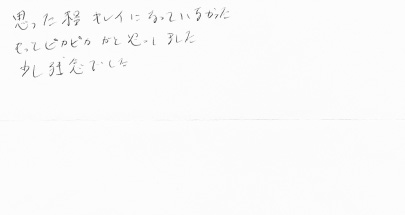 思った程キレイになっているかった
もってピカピカかと思いました
少し残念でした